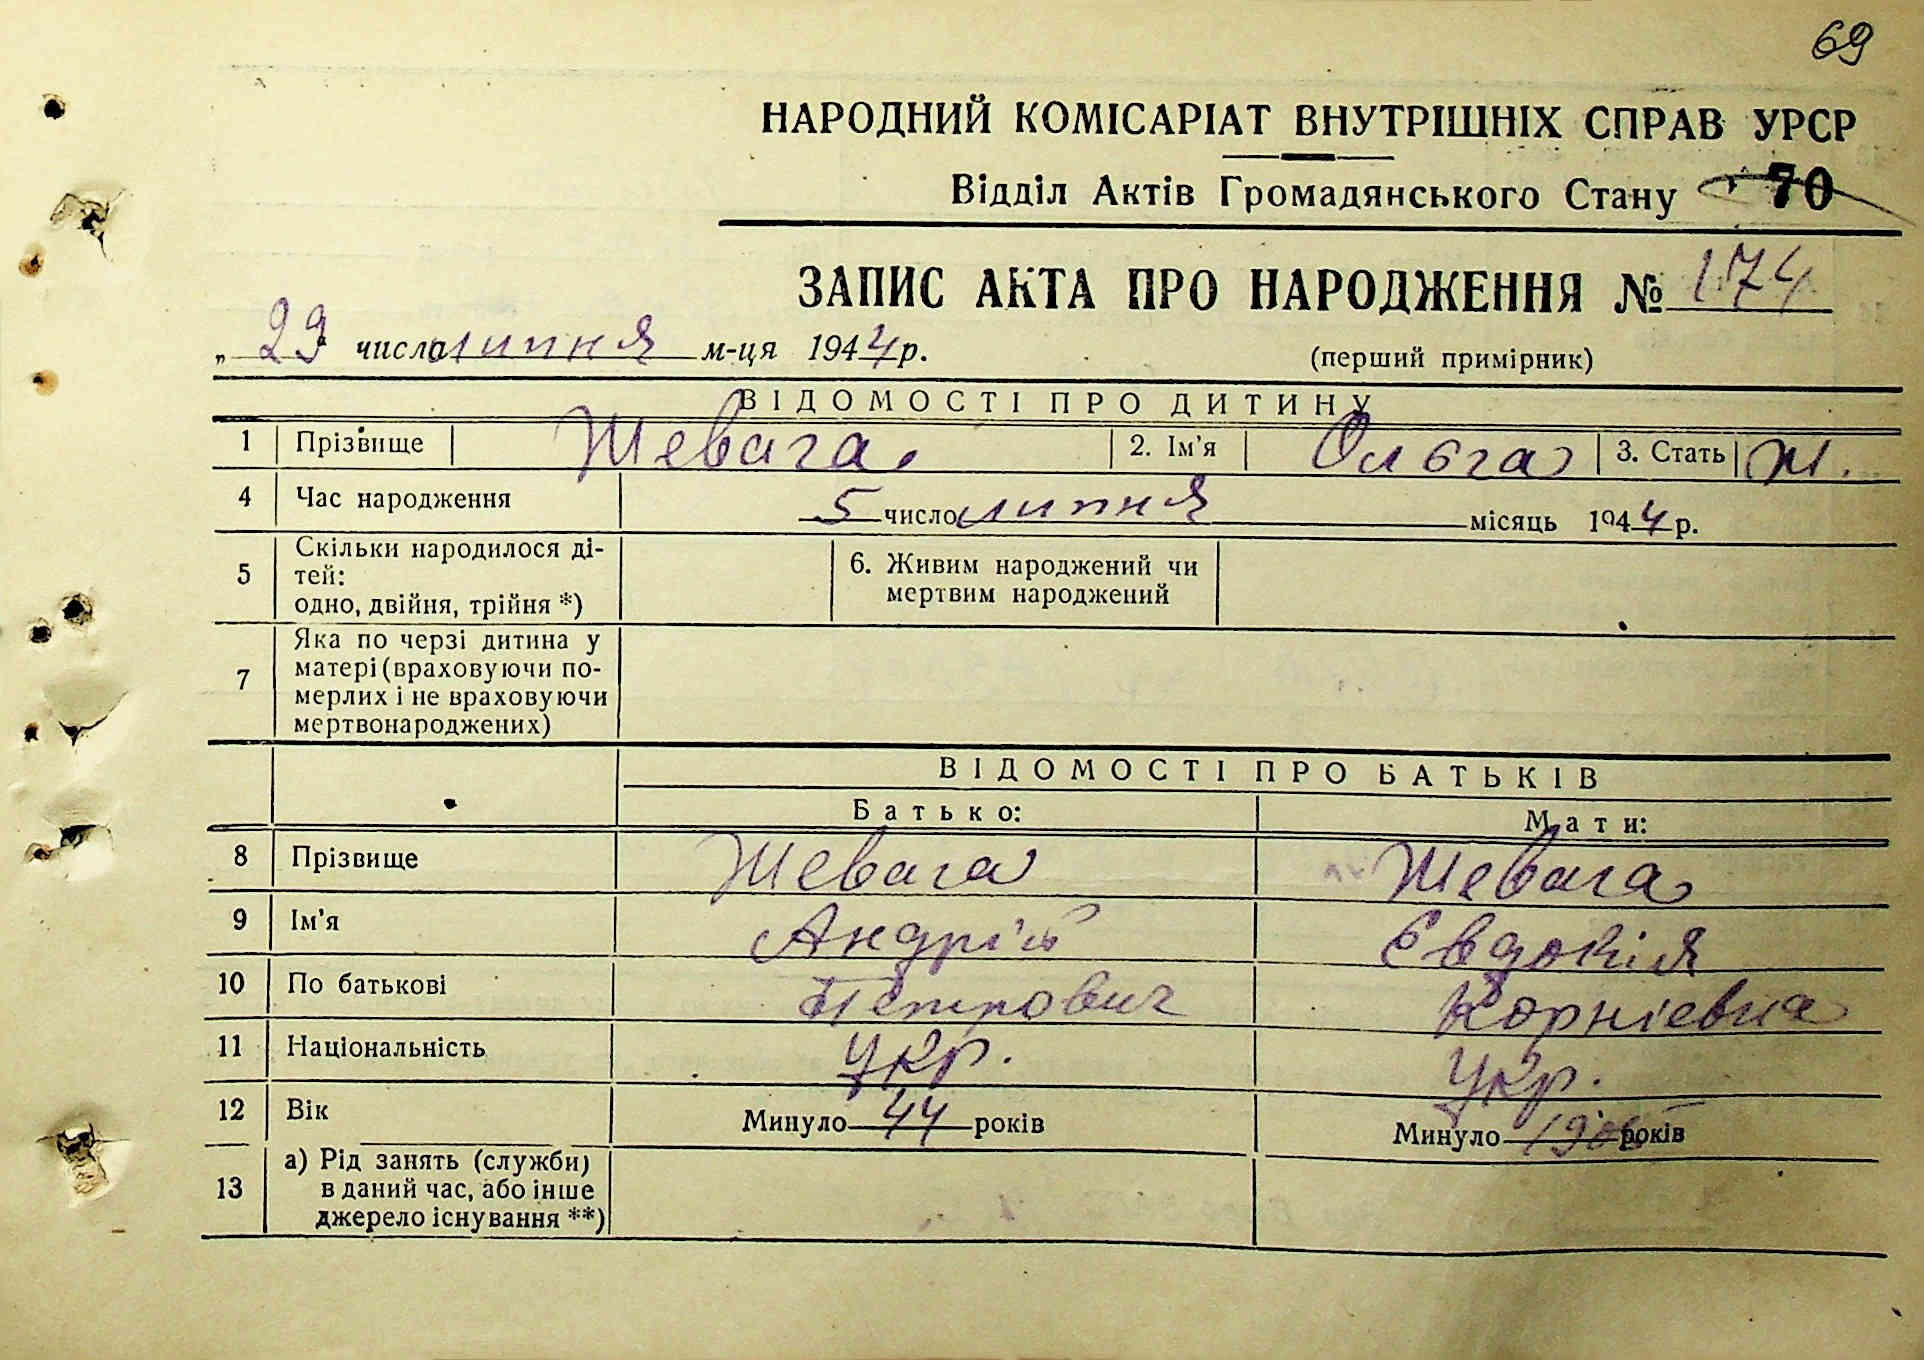 69
НАРОДНИЙ КОМІСАРІАТ ВНУТРІШНІХ СПРАВ УРСР
Відділ Актів Громадянського Стану 70
ЗАПИС АКТА ПРО НАРОДЖЕННЯ № 174
„ 29 число липня м-ця 1944 р. (перший примірник)
ВІДОМОСТІ ПРО ДИТИНУ
1 Прізвище Шевага 2. Ім'я Ольга 3. Стать Ж.
4 Час народження 5 число липня місяць 1944 р.
5 Скільки народилося ді-
тей:
одно, двійня, трійня *)
6. Живим народжений чи
мертвим народжений
7 Яка по черзі дитина у
матері (враховуючи по-
мерлих і не враховуючи
мертвонароджених)
ВІДОМОСТІ ПРО БАТЬКІВ
Батько: Мати:
8 Прізвище Шевага Шевага
9 Ім'я Андрій Євдокія
10 По батькові Петрович Корніевна
11 Національність Укр. Укр.
12 Вік Минуло 44 років Минуло років
13 а) Рід занять (служби)
в даний час, або інше
джерело існування **)